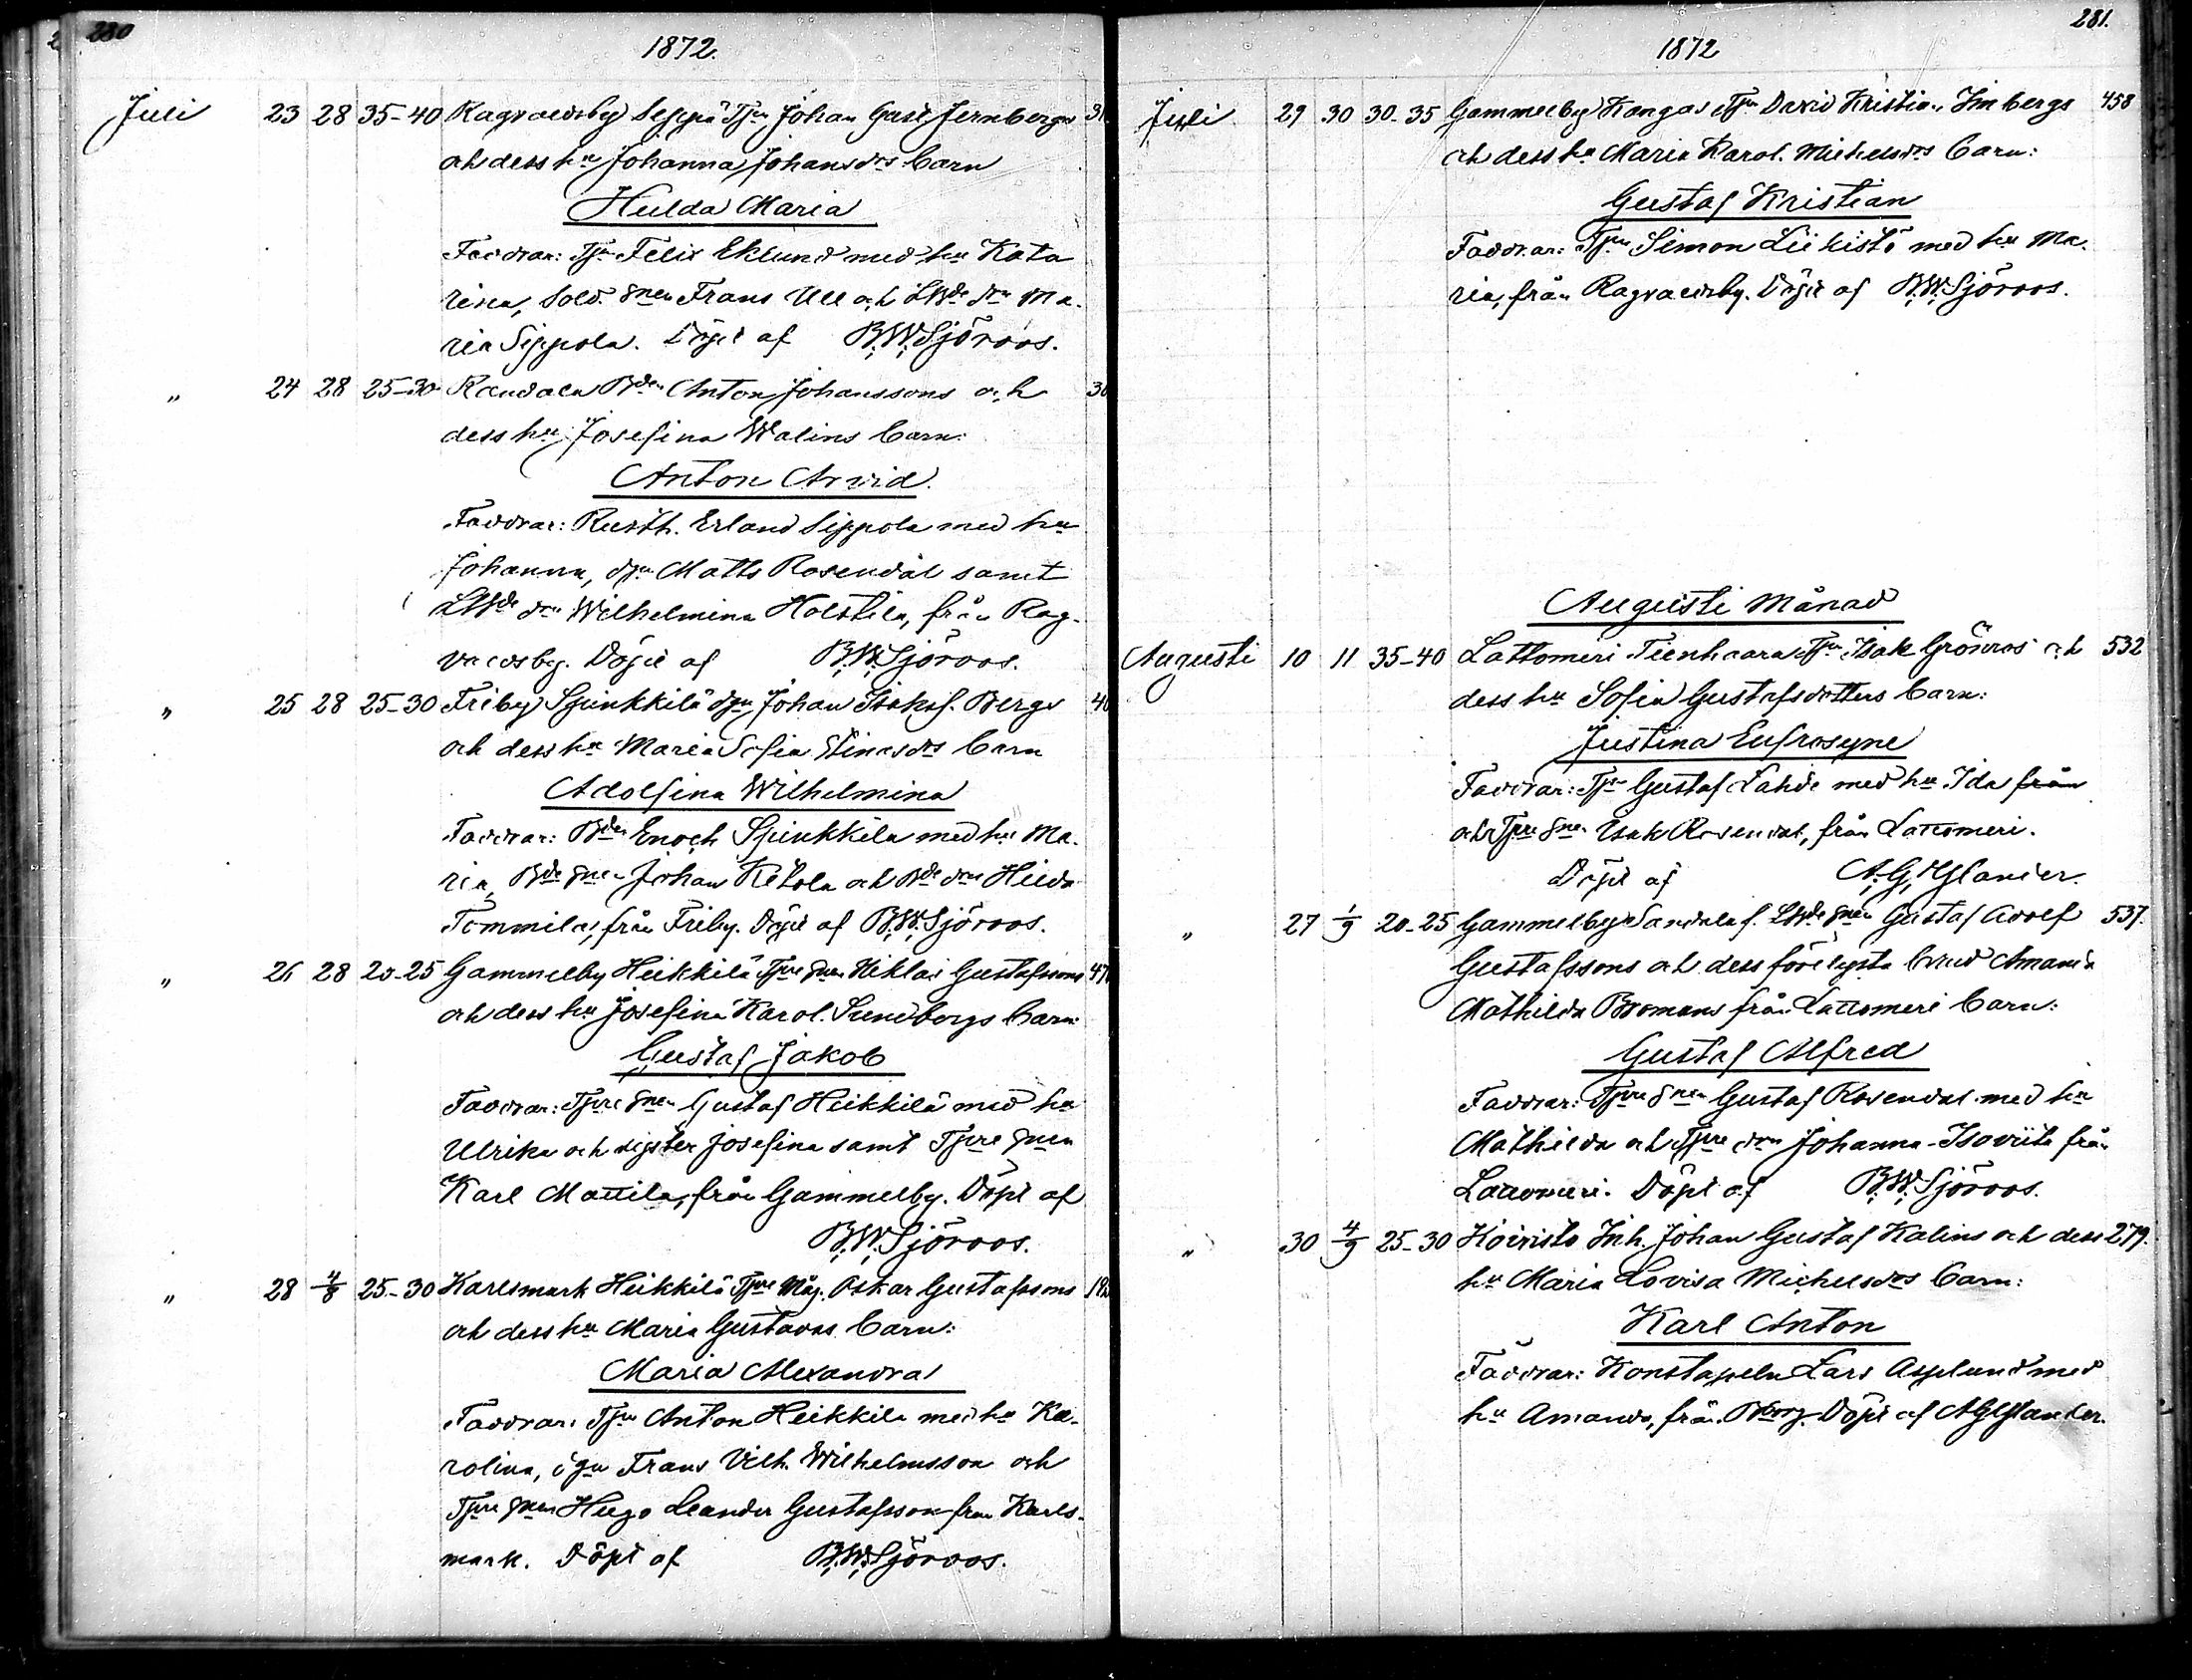 280
1872.
Juli 23 28 35-40 Ragvaldsby Seppä Tjn Johan Gust. Jernbergs
och dess hu Johanna Johansdrs barn
Hulda Maria
Faddrar: Tjn Felix Eklund med hu Kata
rina, Sold. gnen Frans Ull och LBde drn Ma-
ria Sippola. Döpt af B.W.Sjöroos.
" 24 28 25-30 Bdn Anton Johanssons och
dess hu Josefina Walins barn:
Anton Arvid.
Faddrar: Rusth. Erland Sippola med hu
Johanna, Matts Rosendal samt
LBde drn Wilhelmina Holstila, från Rag-
valdsby. Döpt af B.W.Sjöroos.
" 25 28 25-30 Friby Spinkkilä Johan Isaksf. Bergs
och dess hu Maria Sofia Stinasdrs barn
Adolfina Wilhelmina
Faddrar: Bdn Enoch Spinkkila med hu Ma-
ria, Bde gnen Johan Ketola och Bde drn Hilda
Tommila, från Friby. Döpt af B.W.Sjöroos.
" 26 28 20-25 Gammelby Heikkilä Tjre gnen Niklas Gustafssons
och dess hu Josefina Karol. Sundbergs barn
Gustaf Jakob
Faddrar: Tjre gnen Gustaf Heikkilä med hu
Ulrika och syster Josefina samt Tjre gnen
Karl Mattila, från Gammelby. Döpt af
B.W.Sjöroos.
" 28 4/8 25-30 Karlsmark Heikkilä Tjre Måg. Oskar Gustafssons
och dess hu Maria Gustavas barn:
Maria Alexandra
Faddrar: Tjn Anton Heikkila med hu Ka-
rolina, Frans Vilh. Wilhelmsson och
Tjre gnen Hugo Leander Gustafsson från Karls-
mark. Döpt af B.W.Sjöroos.
281.
1872
Juli 29 30 30-35 Gammelby Kangas Tjn David Kristian Imbergs 458
och dess hu Maria Karol. Michelsdrs barn:
Gustaf Kristian
Faddrar: Tjn Simon Liikistö med hu Ma-
ria, från Ragvaldsby. Döpt af B.W.Sjöroos.
Augusti Månad
Augusti 10 11 35-40 Lattomeri Tienhaara Tjn Isak Grönros och 532
dess hu Sofia Gustafsdotters barn:
Justina Eufrosyne
Faddrar: Tjn Gustaf Lahde med hu Ida från
och Tjre gnen Isak Rosendal, från Lattomeri.
Döpt af A.G.Ylander.
" 27 1/9 20-25 Gammelby Sandala f. LBde gnen Gustaf Adolf 537.
Gustafssons och dess förelysta brud Amanda
Mathilda Bromans från Lattomeri barn:
Gustaf Alfred
Faddrar: Tjre gnen Gustaf Rosendal med hu
Mathilda och Tjre drn Johanna Isoviita från
Lattomeri. Döpt af B.W.Sjöroos.
" 30 4/9 25-30 Koivisto Inh. Johan Gustaf Kalins och dess 279.
hu Maria Lovisa Michelsdrs barn:
Karl Anton
Faddrar: Konstapeln Lars Asplund med
hu Amanda, från Bborg. Döpt af AGYlander.